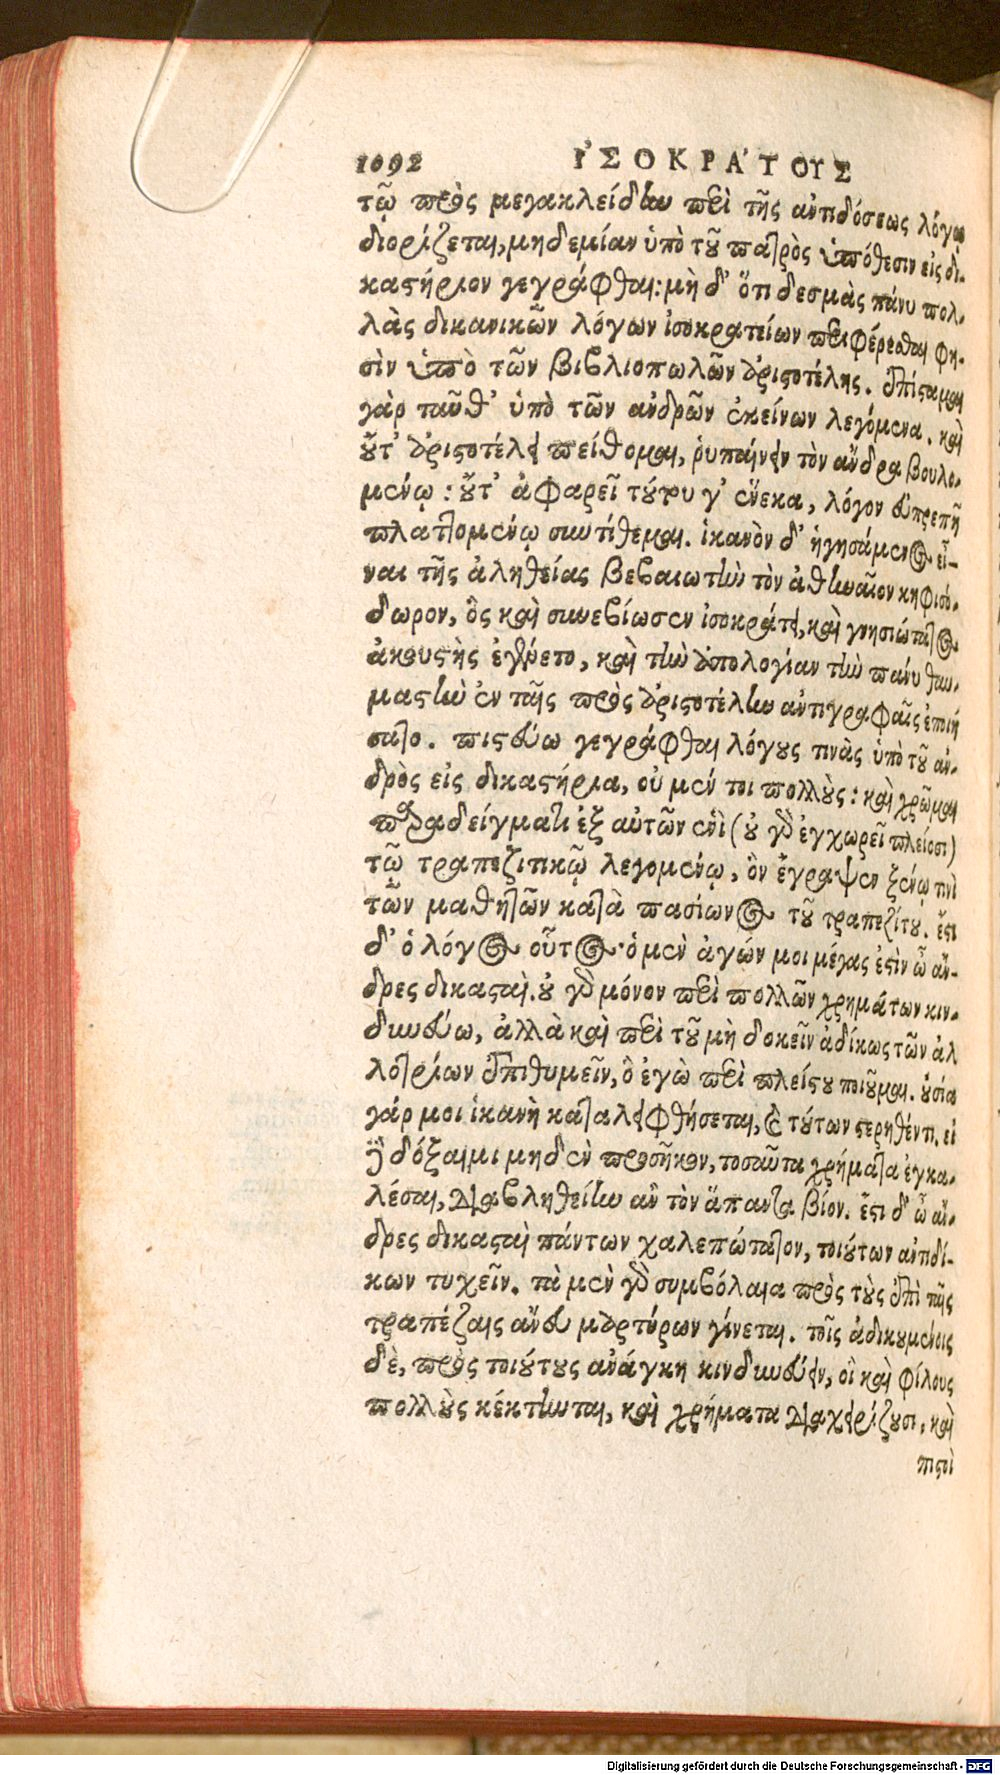 1092 ἸΣΟΚΡΆΤΟΥΣ
τῷ πρὸς μεγακλείδην περὶ τῆς ἀντιδόσεως λόγῳ
διορίζεται, μηδεμίαν ὑπὸ τοῦ πατρὸς ὑπόθεσιν εἰς δι-
καστήριον γεγράφθαι: μὴ δ' ὅτι δεσμὰς πάνυ πολ-
λὰς δικανικῶν λόγων ἰσοκρατείων περιφέρεσθαι φη-
σὶν ὑπὸ τῶν βιβλιοπωλῶν ἀριστοτέλης. ἐπίσταμαι
γὰρ ταῦθ' ὑπὸ τῶν ἀνδρῶν ἐκείνων λεγόμενα. καὶ
οὔτ' ἀριστοτέλει πείθομαι, ῥυπαίνειν τὸν ἄνδρα βουλο-
μένῳ: οὔτ' ἀφαρεῖ τούτου γ' ἕνεκα, λόγον εὐπρεπῆ
πλαττομένῳ συντίθεμαι. ἱκανὸν δ' ἡγησάμενος εἶ-
ναι τῆς ἀληθείας βεβαιωτὴν τὸν ἀθηναῖον κηφισό-
δωρον, ὃς καὶ συνεβίωσεν ἰσοκράτει, καὶ γνησιώτατος
ἀκουστὴς ἐγένετο, καὶ τὴν ἀπολογίαν τὴν πάνυ θαυ-
μαστὴν ἐν ταῖς πρὸς ἀριστοτέλην ἀντιγραφαῖς ἐποιή
σατο. πιστεύω γεγράφθαι λόγους τινὰς ὑπὸ τοῦ ἀν-
δρὸς εἰς δικαστήρια, οὐ μέν τοι πολλοὺς: καὶ χρῶμαι
παραδείγματι ἐξ αὐτῶν ἑνὶ (οὐ γὰρ ἐγχωρεῖ πλείοσι)
τῷ τραπεζιτικῷ λεγομένῳ, ὃν ἔγραψεν ξένῳ τινὶ
τῶν μαθητῶν κατὰ πασίωνος τοῦ τραπεζίτου. ἔστι
δ' ὁ λόγος οὗτος· ὁ μὲν ἀγών μοι μέγας ἐστὶν ὦ ἄν-
δρες δικασταί. οὐ γὰρ μόνον περὶ πολλῶν χρημάτων κιν-
δυνεύω, ἀλλὰ καὶ περὶ τοῦ μὴ δοκεῖν ἀδίκως τῶν ἀλ
λοτρίων ἐπιθυμεῖν, ὃ ἐγὼ περὶ πλείστου ποιοῦμαι. οὐσία
γάρ μοι ἱκανὴ καταλειφθήσεται, καὶ τούτων στερηθέντι. εἰ
δὲ δόξαιμι μηδὲν προσῆκον, τοσαῦτα χρήματα ἐγκα-
λέσαι, διαβληθείην ἂν τὸν ἅπαντα βίον. ἔστι δ' ὦ ἄν-
δρες δικασταὶ πάντων χαλεπώτατον, τοιούτων ἀντιδί-
κων τυχεῖν. τὰ μὲν γὰρ συμβόλαια πρὸς τοὺς ἐπὶ ταῖς
τραπέζαις ἄνευ μαρτύρων γίνεται. τοῖς ἀδικουμένοις
δὲ, πρὸς τοιούτους ἀνάγκη κινδυνεύειν, οἳ καὶ φίλους
πολλοὺς κέκτηνται, καὶ χρήματα διαχειρίζουσι, καὶ
πιστοὶ
Digitalisierung gefördert durch die Deutsche Forschungsgemeinschaft - DFG